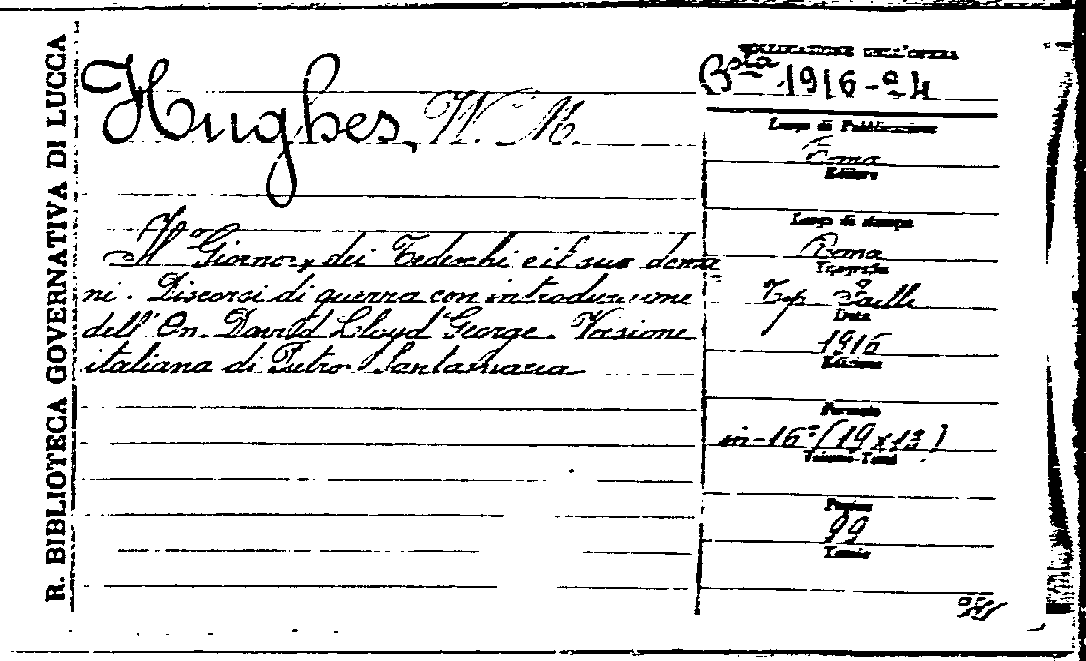 R. BIBLIOTECA GOVERNATIVA DI LUCCA
Hughes, W. M.
Il Giorno, dei Tedeschi e il suo doma
ni. Discorsi di guerra con introduzione
dell' On. David Lloyd George. Versione
italiana di Pietro Santamaria
COLLOCAZIONE DELL'OPERA
Bta 1916-24
Luogo di Pubblicazione
Roma
Editore
Luogo di stampa
Roma
Tipografia
Tip.
Data
1916
Edizione
Formato
in-16° (19x13)
Volume-Tomi
Pagine
99
Tavole